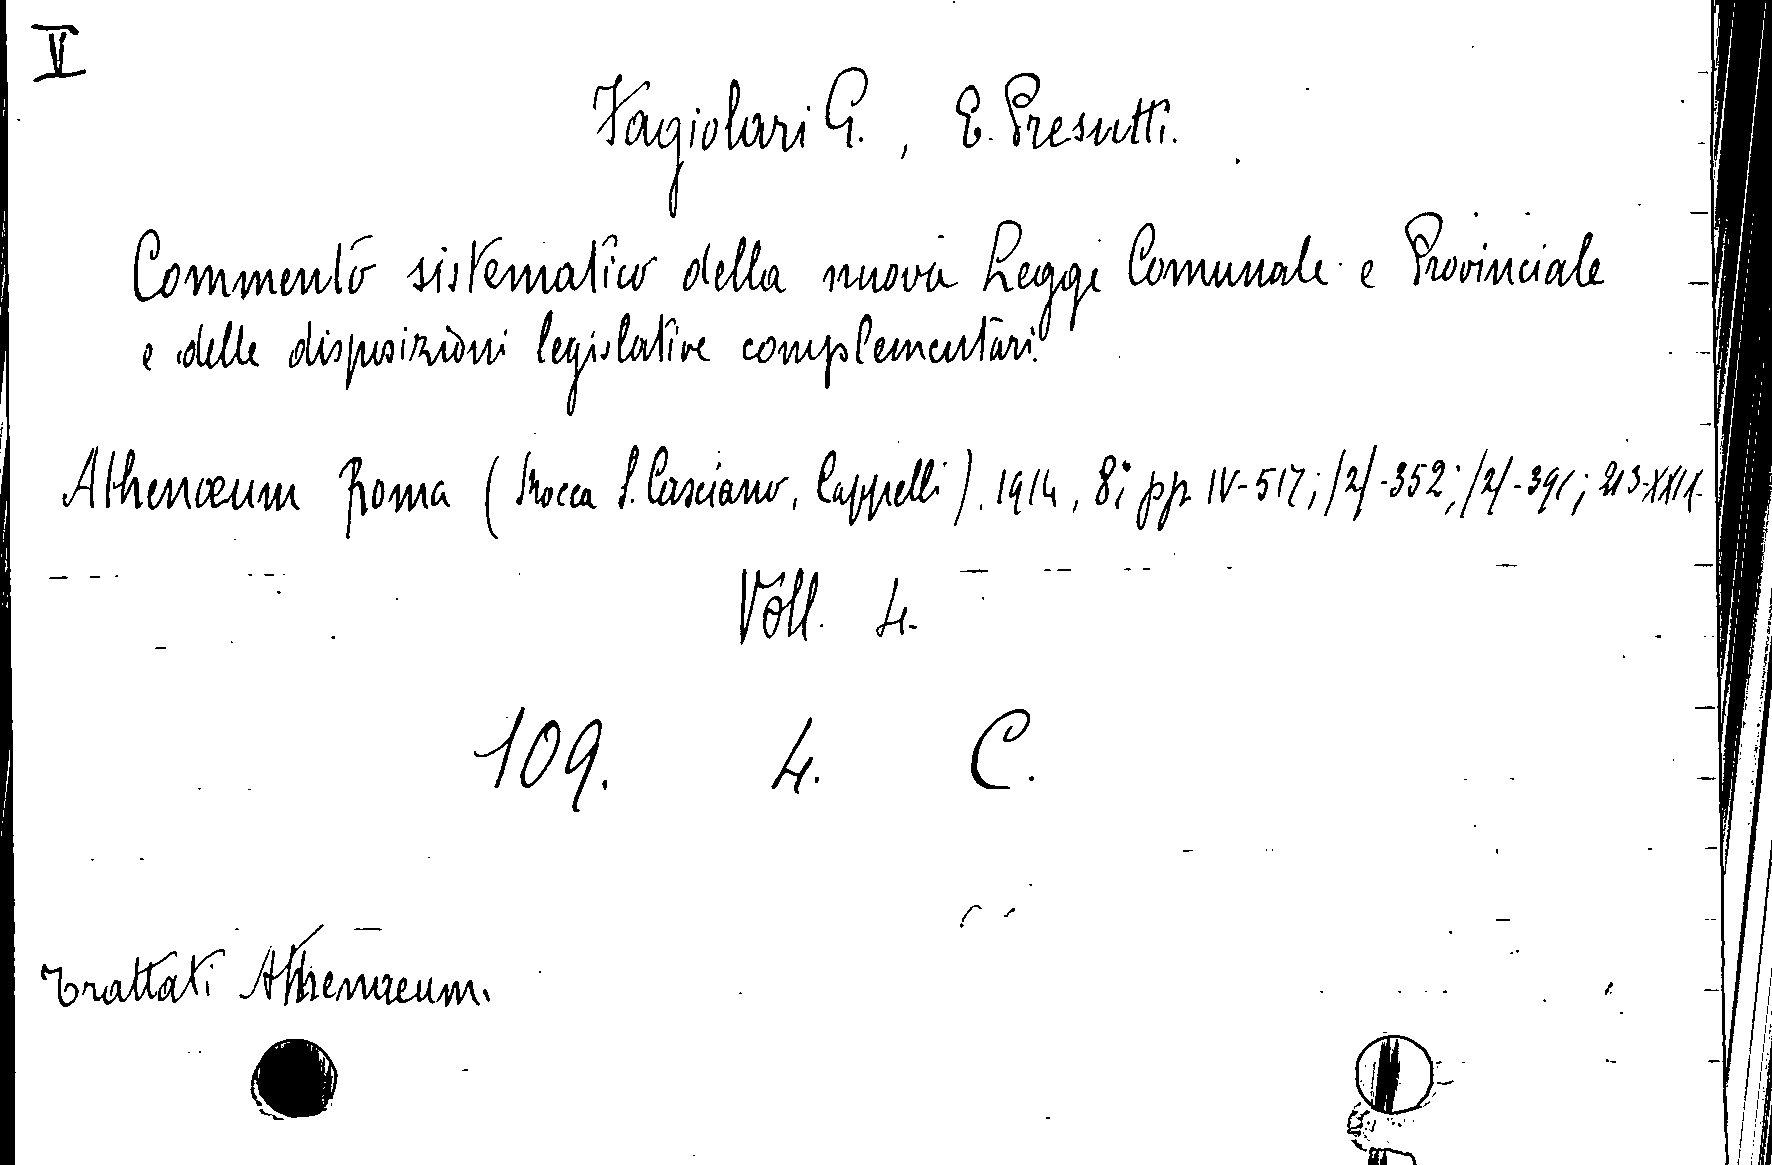 V
Fagiolari G., E. Presutti.
Commento sistematico della nuova Legge Comunale e Provinciale
e delle disposizioni legislative complementari.
Athenæum Roma (Rocca S. Casciano, Cappelli). 1914, 8°; pp. IV-517; /2/-352; /2/-391; 213-XXII.
Voll. 4.
109. 4. C.
Trattati Athenæum.